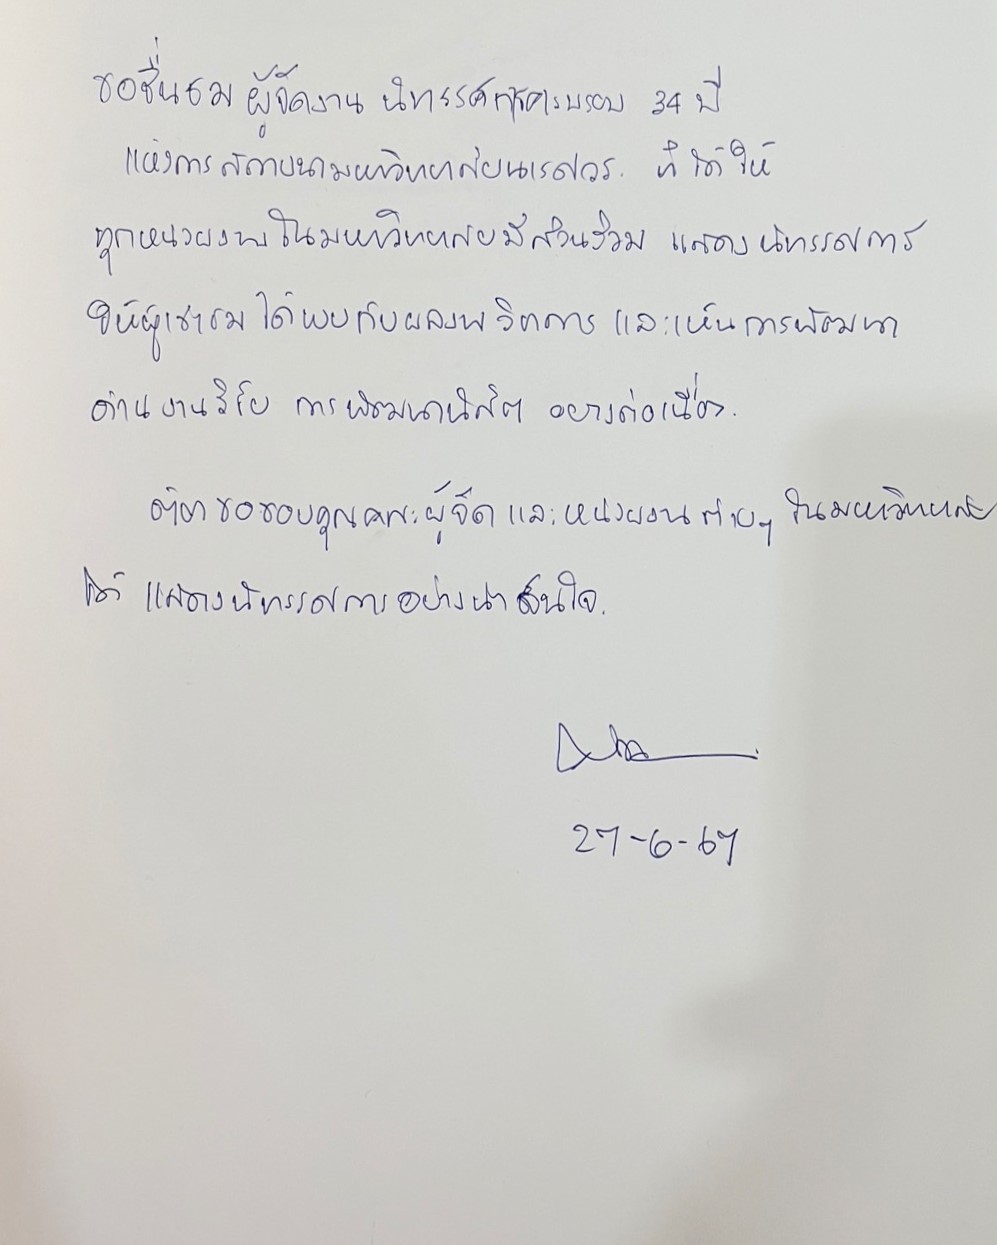 ขอชื่นชม ผู้จัดงาน นิทรรศการครบรอบ 34 ปี
แห่งการสถาปนามหาวิทยาลัยนเรศวร. ที่ได้ให้
ทุกหน่วยงานในมหาวิทยาลัยมีส่วนร่วม แสดงนิทรรศการ
ให้ผู้เข้าชม ได้พบกับผลงาน วิชาการ และเห็นการพัฒนา
ด้านงานวิจัย การพัฒนานิสิต อย่างต่อเนื่อง.
ขอขอบคุณคณะผู้จัดและหน่วยงานต่างๆ ในมหาวิทยาลัย
ได้แสดงนิทรรศการอย่างน่าสนใจ.
27-6-67